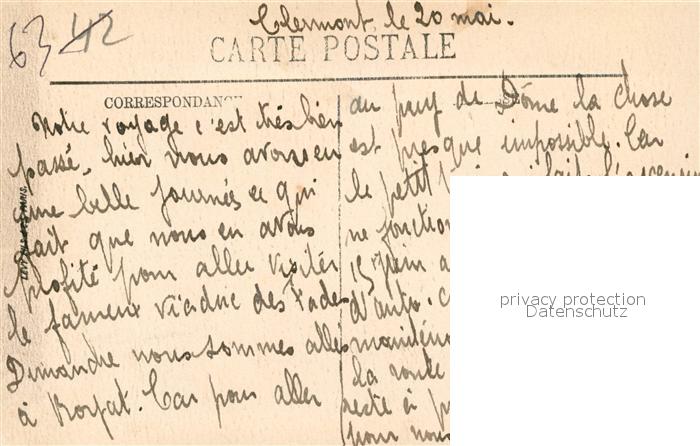 63 42
Clermont, le 20 mai.
CARTE POSTALE
CORRESPONDANCE
Notre voyage c'est très bien
passé, hier nous avons eu
une belle journée ce qui
fait que nous en avons
profité pour aller visiter
le fameux viaduc des Fades
Dimanche nous sommes allés
à Royat. Car pour aller
au puy de Dôme la chose
est presque impossible. Car
le petit
ne fonction
15 Juin a
d'auto. C
maintenant
la route
reste à
pour nous
privacy protection
Datenschutz